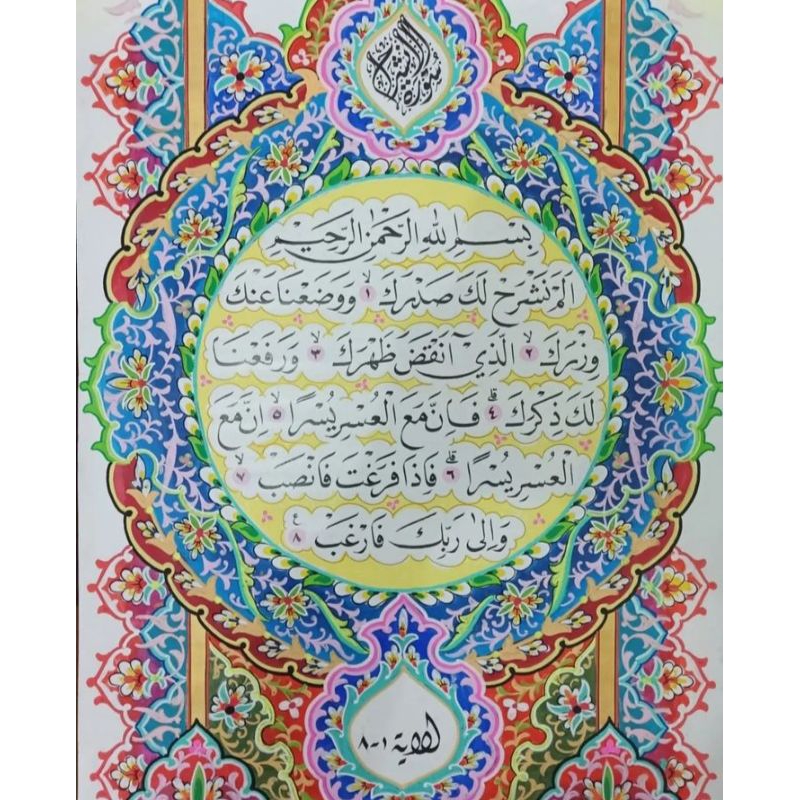 سورة الانشراح
بِسْمِ اللهِ الرَّحْمٰنِ الرَّحِيْمِ
اَلَمْ نَشْرَحْ لَكَ صَدْرَكَ ۱ وَوَضَعْنَا عَنْكَ
وِزْرَكَ ۲ الَّذِيْٓ اَنْقَضَ ظَهْرَكَ ۳ وَرَفَعْنَا
لَكَ ذِكْرَكَ ۴ فَاِنَّ مَعَ الْعُسْرِ يُسْرًا ۵ اِنَّ مَعَ
الْعُسْرِ يُسْرًا ۶ فَاِذَا فَرَغْتَ فَانْصَبْ ۷
وَاِلٰى رَبِّكَ فَارْغَبْ ۸
الاية ١-٨